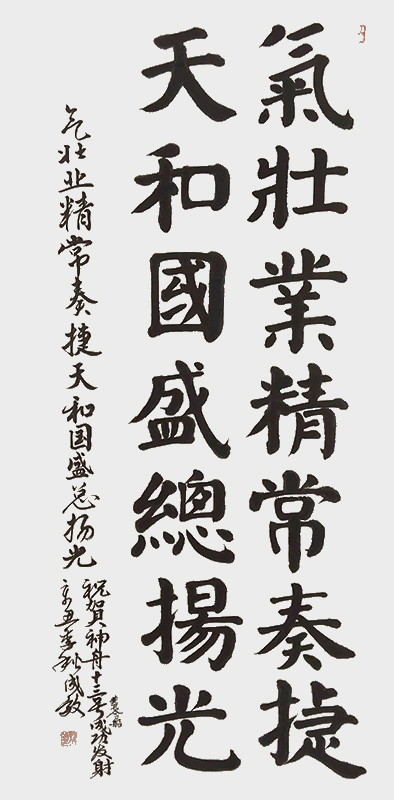 氣壯業精常奏捷
天和國盛總揚光
气壮业精常奏捷天和国盛总扬光
祝賀神舟十三号成功发射
辛丑